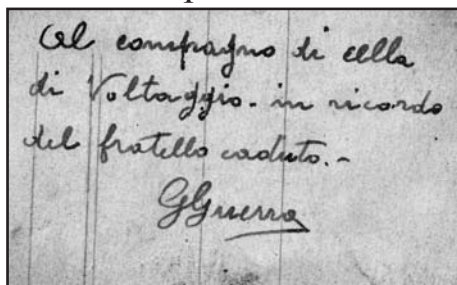 Al compagno di cella
di Voltaggio. in ricordo
del fratello caduto.-
GGuerra